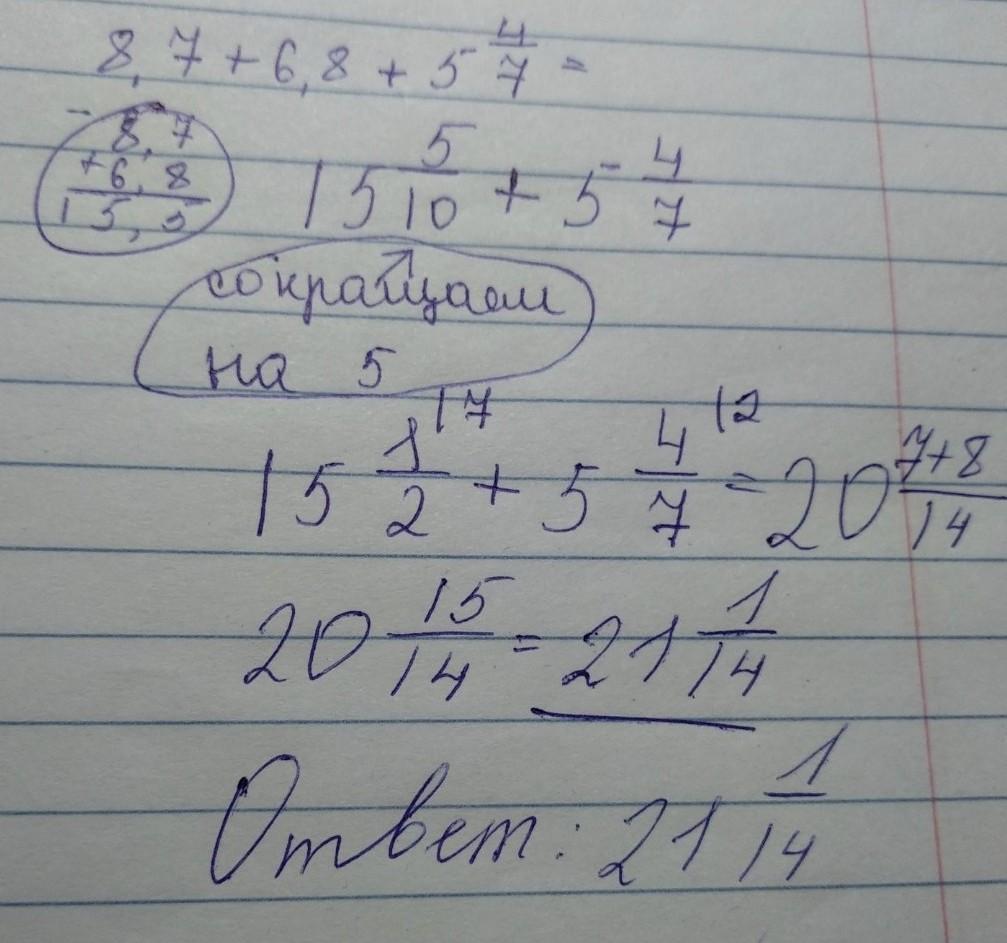 8,7 + 6,8 + 5 4/7 =
8,7
+6,8
15,5
15 5/10 + 5 4/7
сокращаем
на 5
15 1/2 |7 + 5 4/7 |2 = 20 7+8/14
20 15/14 = 21 1/14
Ответ: 21 1/14